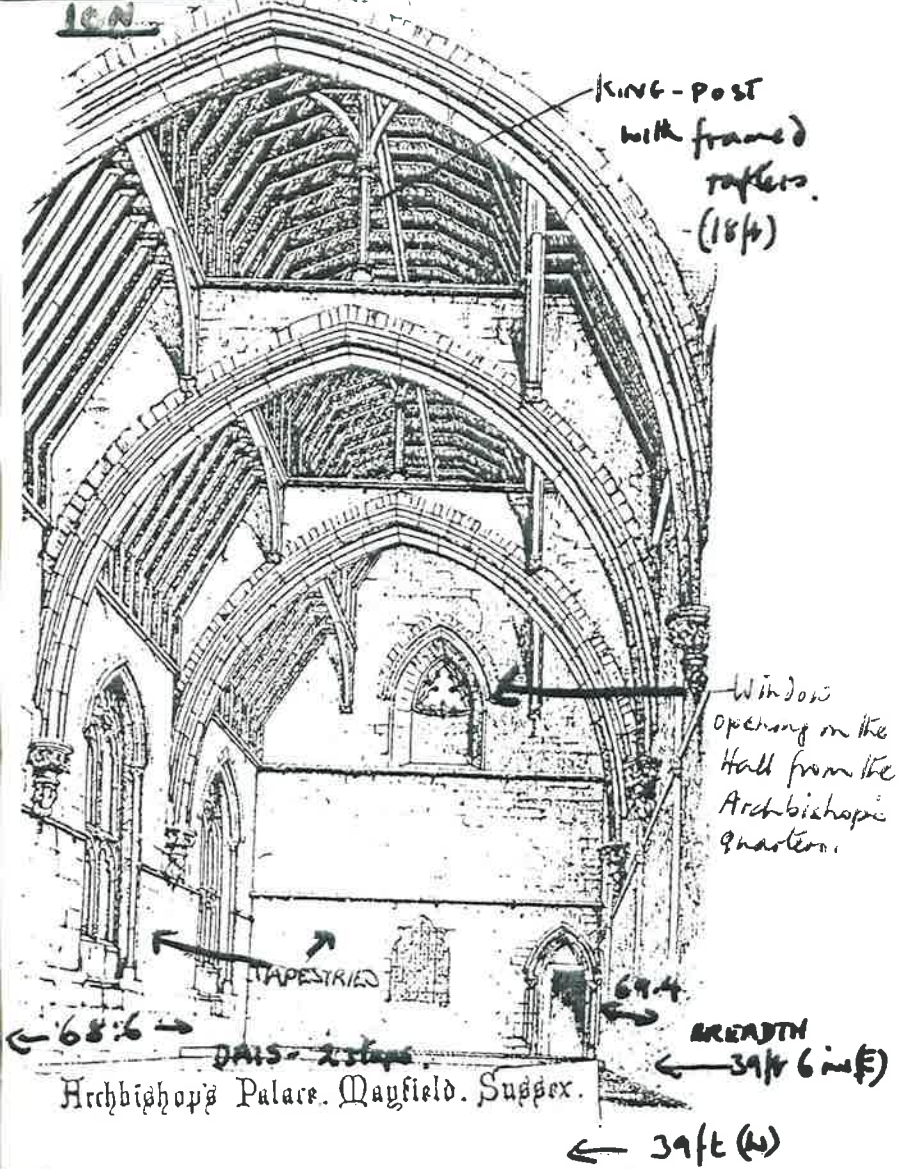 ICN
KING-POST
with framed
rafters.
(18ft)
Window
opening on the
Hall from the
Archbishop's
quarters.
TAPESTRIED
69.4
68:6
DAIS - 2 steps.
BREADTH
39ft 6 ins (E)
Archbishop's Palace. Mayfield. Sussex.
39ft (W)